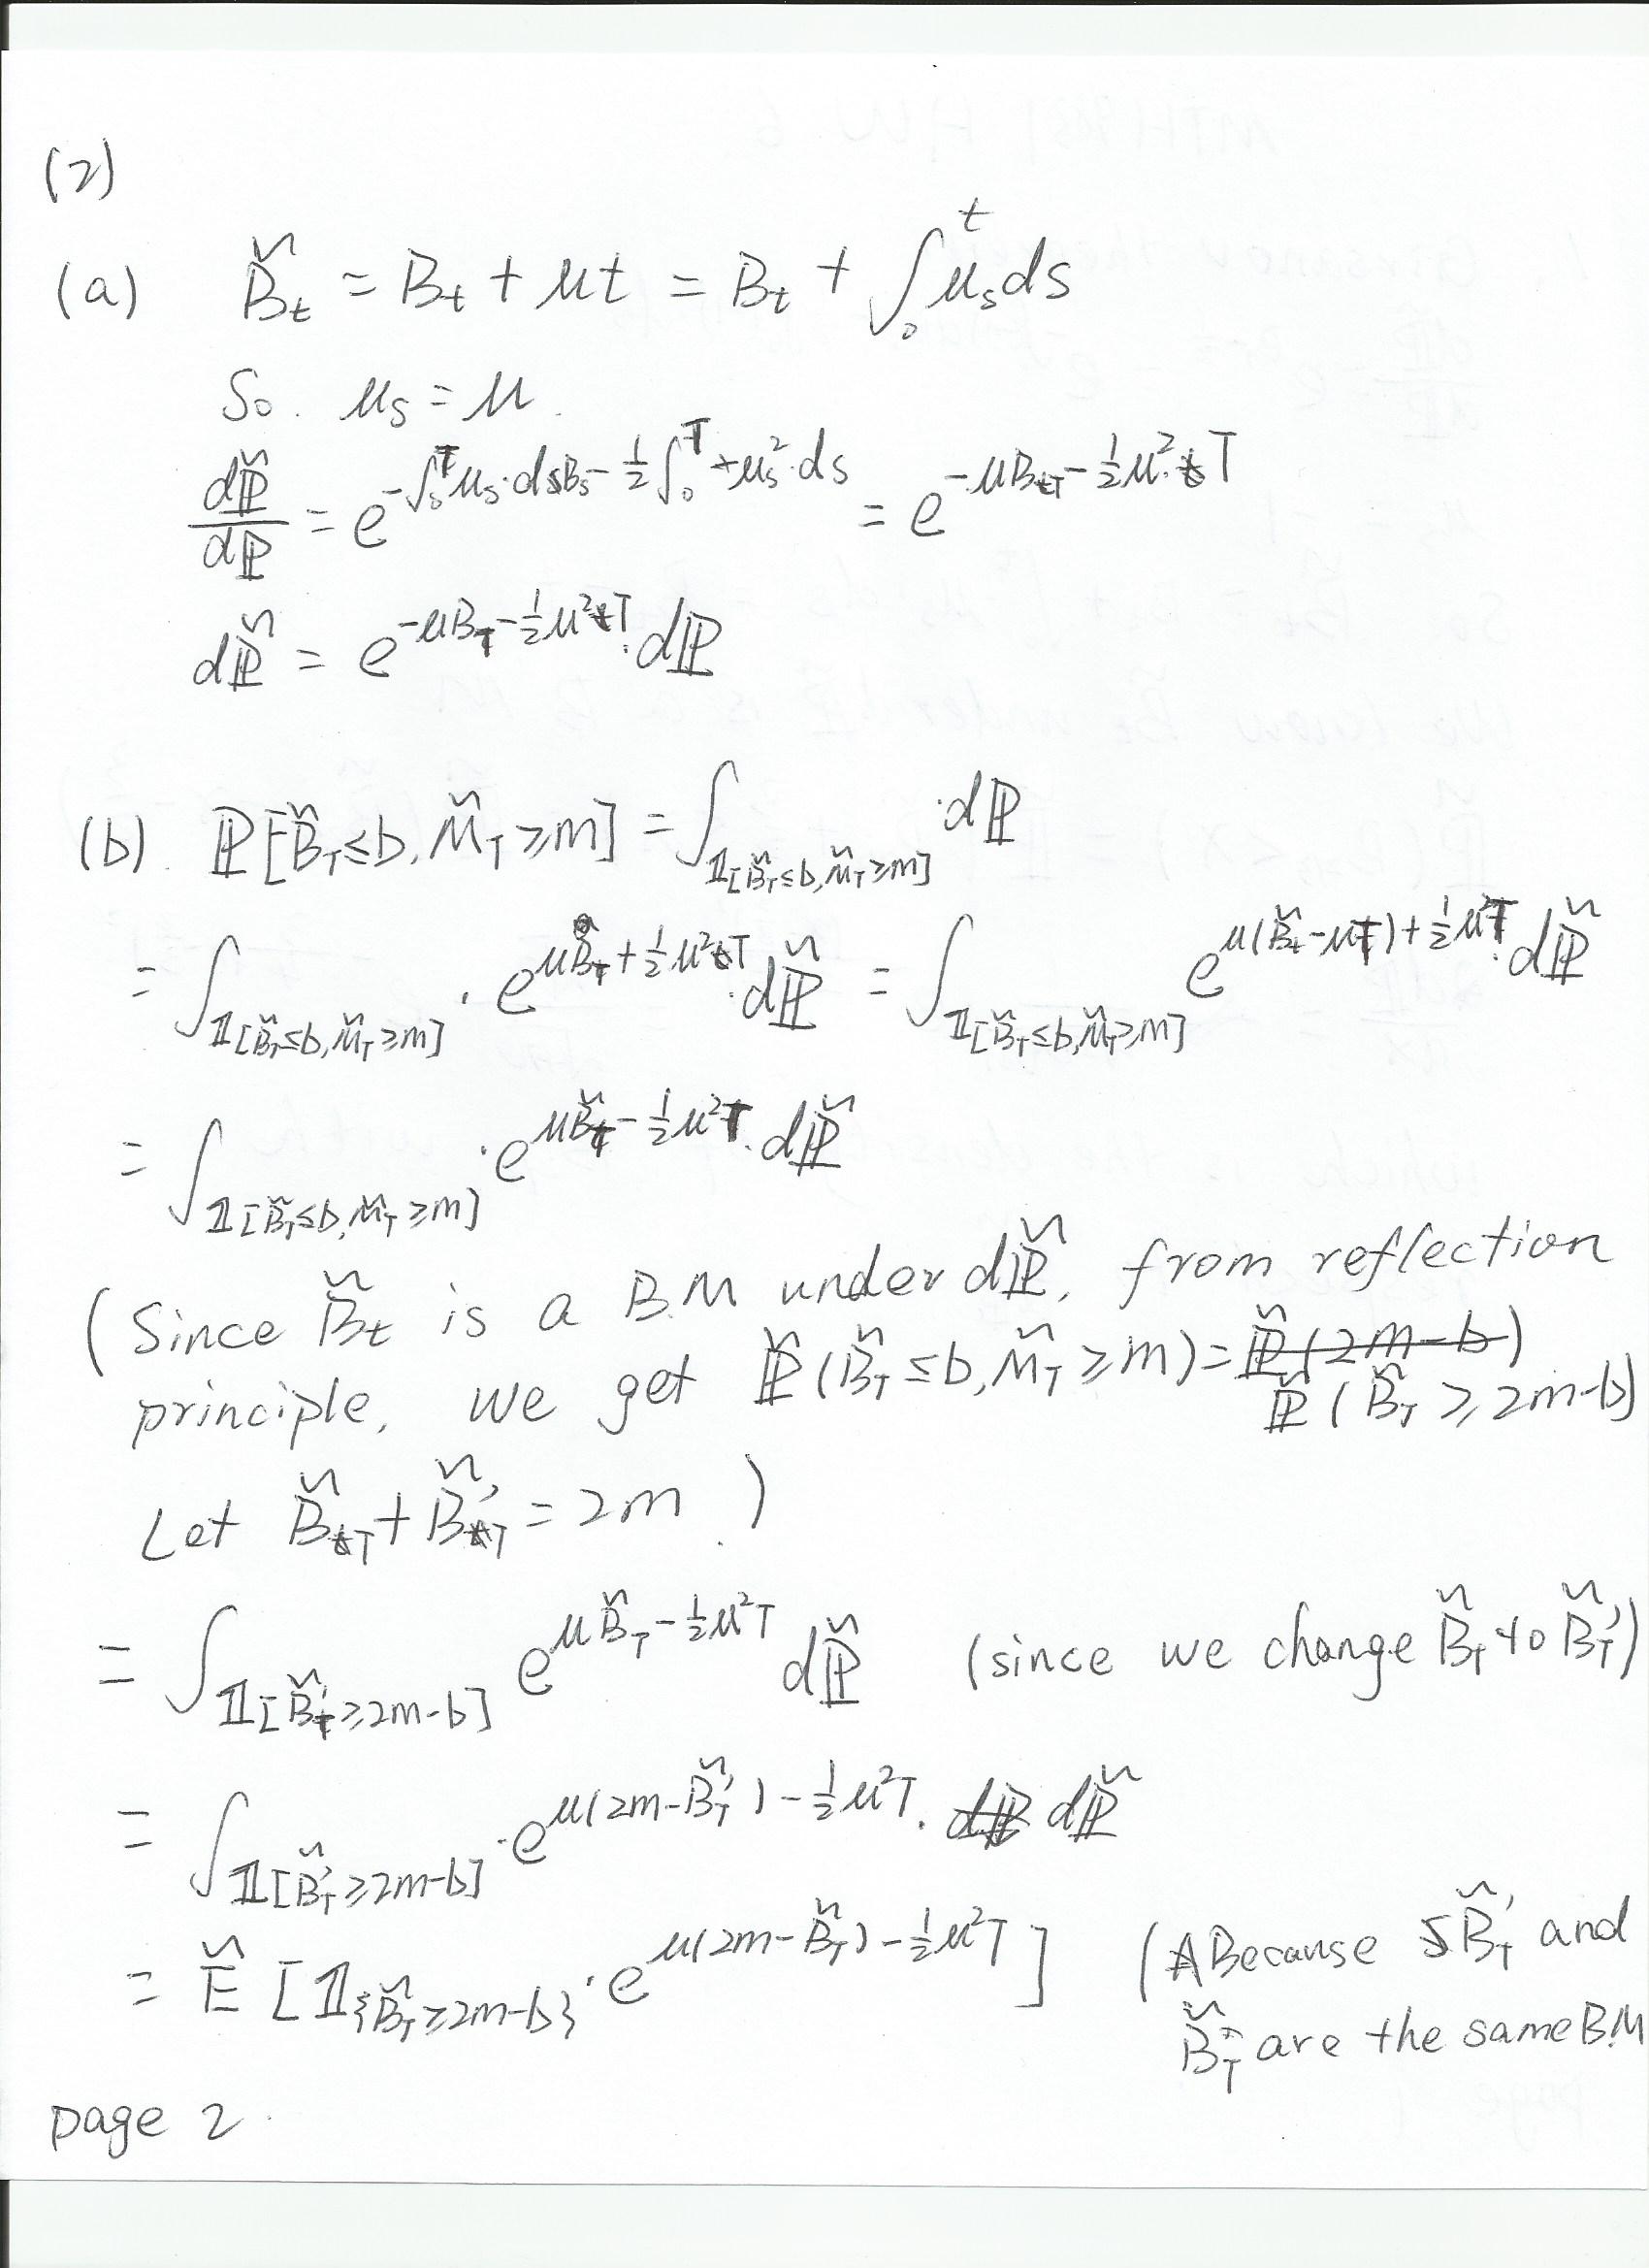 (2)
(a) B̃_t = B_t + μt = B_t + ∫_0^t μ_s ds
So. μ_s = μ.
dP̃/dP = e^{-∫_0^T μ_s · dB_s - 1/2 ∫_0^T μ_s^2 · ds} = e^{-μB_T - 1/2 μ^2 · T}
dP̃ = e^{-μB_T - 1/2 μ^2 T} · dP
(b). P[B̃_T ≤ b, M̃_T ≥ m] = ∫_{𝟙[B̃_T ≤ b, M̃_T ≥ m]} · dP
= ∫_{𝟙[B̃_T ≤ b, M̃_T ≥ m]} · e^{μB_T + 1/2 μ^2 T} · dP̃ = ∫_{𝟙[B̃_T ≤ b, M̃_T ≥ m]} e^{μ(B̃_t - μT) + 1/2 μ^2 T} · dP̃
= ∫_{𝟙[B̃_T ≤ b, M̃_T ≥ m]} · e^{μB̃_T - 1/2 μ^2 T} · dP̃
(Since B̃_t is a B.M under dP̃, from reflection
principle, we get P̃(B̃_T ≤ b, M̃_T ≥ m) = P̃(2m-b)
P̃(B̃_T ≥ 2m-b)
Let B̃_T + B̃'_T = 2m.)
= ∫_{𝟙[B̃'_T ≥ 2m-b]} e^{μB̃_T - 1/2 μ^2 T} dP̃ (since we change B̃_T to B̃'_T)
= ∫_{𝟙[B̃'_T ≥ 2m-b]} · e^{μ(2m-B̃'_T) - 1/2 μ^2 T} · dP dP̃
= Ẽ[𝟙_{B̃_T ≥ 2m-b} · e^{μ(2m-B̃_T) - 1/2 μ^2 T}] (Because B̃'_T and
B̃_T are the same B.M
page 2.